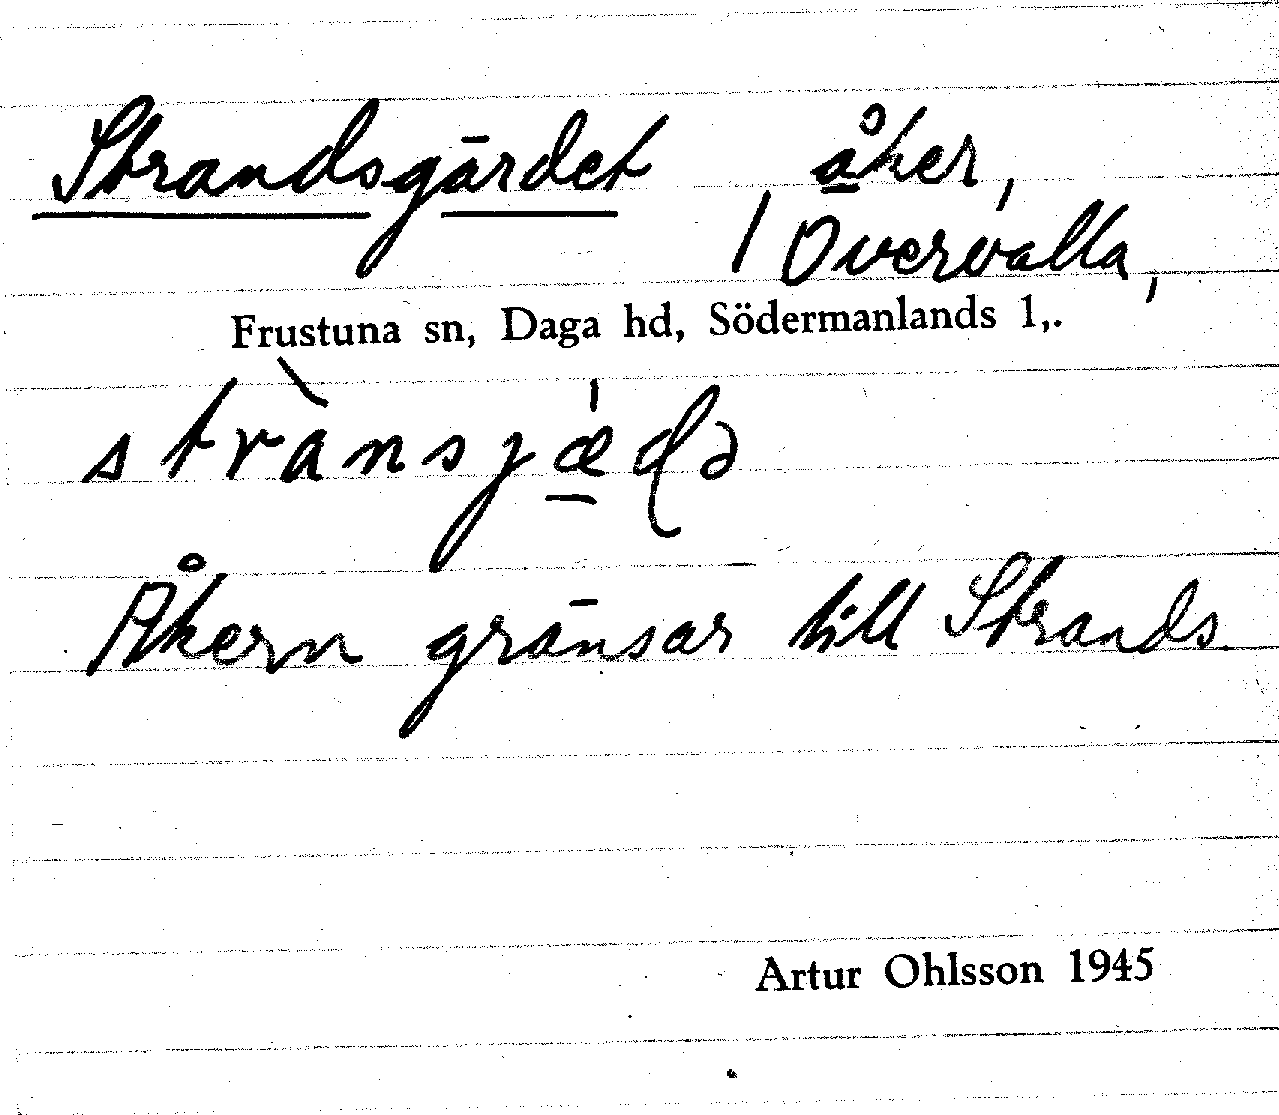 Strandsgärdet åker,
/ Övervalla,
Frustuna sn, Daga hd, Södermanlands l,.
strànsjǽ̱ɖə
Åkern gränsar till Strands.
Artur Ohlsson 1945